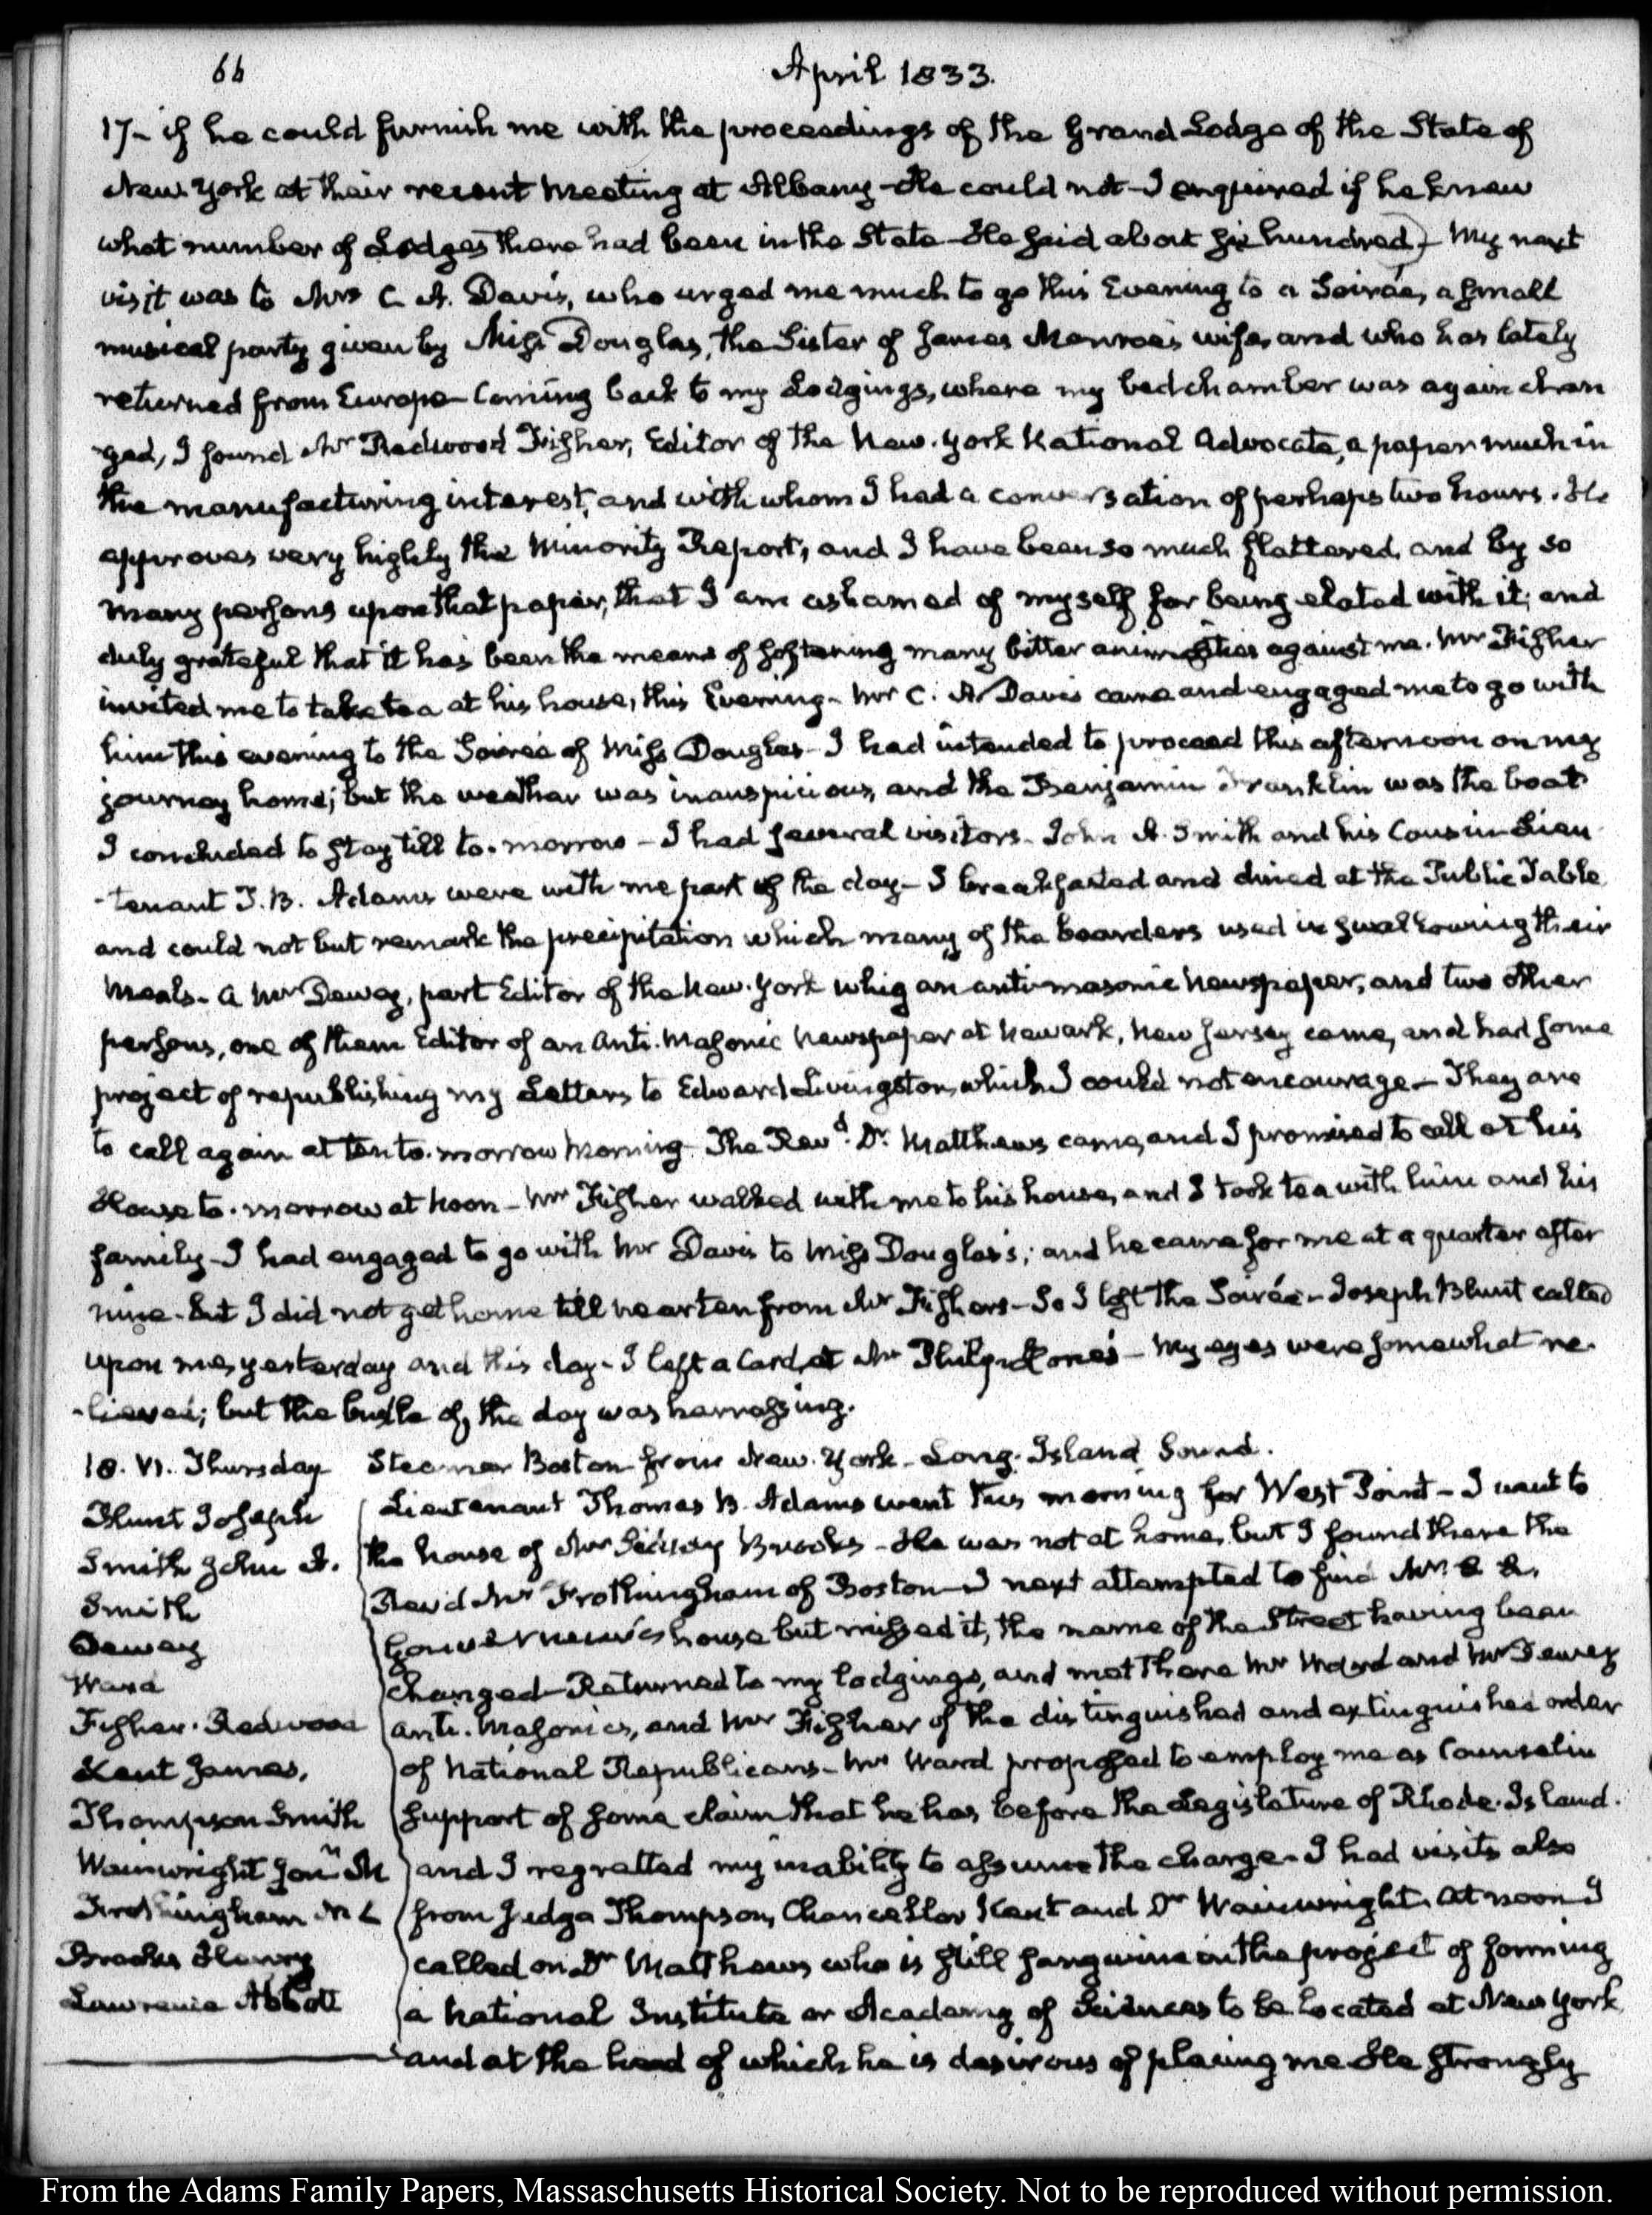 66
April 1833.
17- if he could furnish me with the proceedings of the Grand Lodge of the State of
New York at their recent meeting at Albany - He could not - I enquired if he knew
what number of Lodges there had been in the State - He said about six hundred - My next
visit was to Mrs C. A. Davis, who urged me much to go this Evening to a Soirée, a small
musical party given by Miss Douglas, the Sister of James Monroe's wife, and who has lately
returned from Europe - Coming back to my Lodgings, where my bedchamber was again chan
ged, I found Mr Redwood Fisher, Editor of the New-York National Advocate, a paper much in
the manufacturing interest, and with whom I had a conversation of perhaps two hours. He
approves very highly the Minority Report, and I have been so much flattered, and by so
many persons upon that paper, that I am ashamed of myself for being elated with it; and
duly grateful that it has been the means of softening many bitter animosities against me. Mr Fisher
invited me to take tea at his house, this Evening - Mr C. A. Davis came and engaged me to go with
him this evening to the Soirée of Miss Douglas - I had intended to proceed this afternoon on my
journey home; but the weather was inauspicious, and the Benjamin Franklin was the boat
I concluded to stay till to-morrow - I had several visitors - John A. Smith and his Cousin Lieu
-tenant T. B. Adams were with me part of the day - I breakfasted and dined at the Public Table
and could not but remark the precipitation which many of the boarders used in swallowing their
meals - A Mr Dewey, part Editor of the New-York whig an anti-masonic newspaper, and two other
persons, one of them Editor of an Anti-Masonic Newspaper at Newark, New Jersey came, and had some
project of republishing my Letters to Edward Livingston, which I could not encourage - They are
to call again at ten to-morrow morning - The Revd. Dr. Matthews came, and I promised to call at his
House to-morrow at noon - Mr Fisher walked with me to his house, and I took tea with him and his
family - I had engaged to go with Mr Davis to Miss Douglas's; and he came for me at a quarter after
nine - but I did not get home till near ten from Mr Fishers - So I left the Soirée - Joseph Blunt called
upon me, yesterday and this day - I left a Card, at Mr Philip Hone's - My eyes were somewhat re-
-lieved; but the bustle of the day was harrassing.
18. VI. Thursday Steamer Boston from New-York - Long-Island Sound.
Blunt Joseph
Smith John A.
Smith
Dewey
Ward
Fisher. Redwood
Kent James,
Thompson Smith
Wainwright Jonn M
Frothingham N L
Brooks Henry
Lawrence Abbott
Lieutenant Thomas B. Adams went this morning for West Point - I went to
the house of Mr Sidney Brooks - He was not at home, but I found there the
Revd Mr Frothingham of Boston - I next attempted to find Mr
Gouverneur's house but missed it, the name of the Street having been
changed - Returned to my lodgings, and met there Mr Ward and Mr Dewey
anti-Masonics, and Mr Fisher of the distinguished and extinguished order
of National Republicans - Mr Ward proposed to employ me as Counsel in
support of some claim that he has before the Legislature of Rhode-Island.
and I regretted my inability to assume the charge - I had visits also
from Judge Thompson, Chancellor Kent and Dr Wainwright. At noon I
called on Dr Matthews who is still sanguine in the project of forming
a National Institute or Academy of Sciences to be located at New York,
and at the head of which he is desirous of placing me - He strongly
From the Adams Family Papers, Massaschusetts Historical Society. Not to be reproduced without permission.